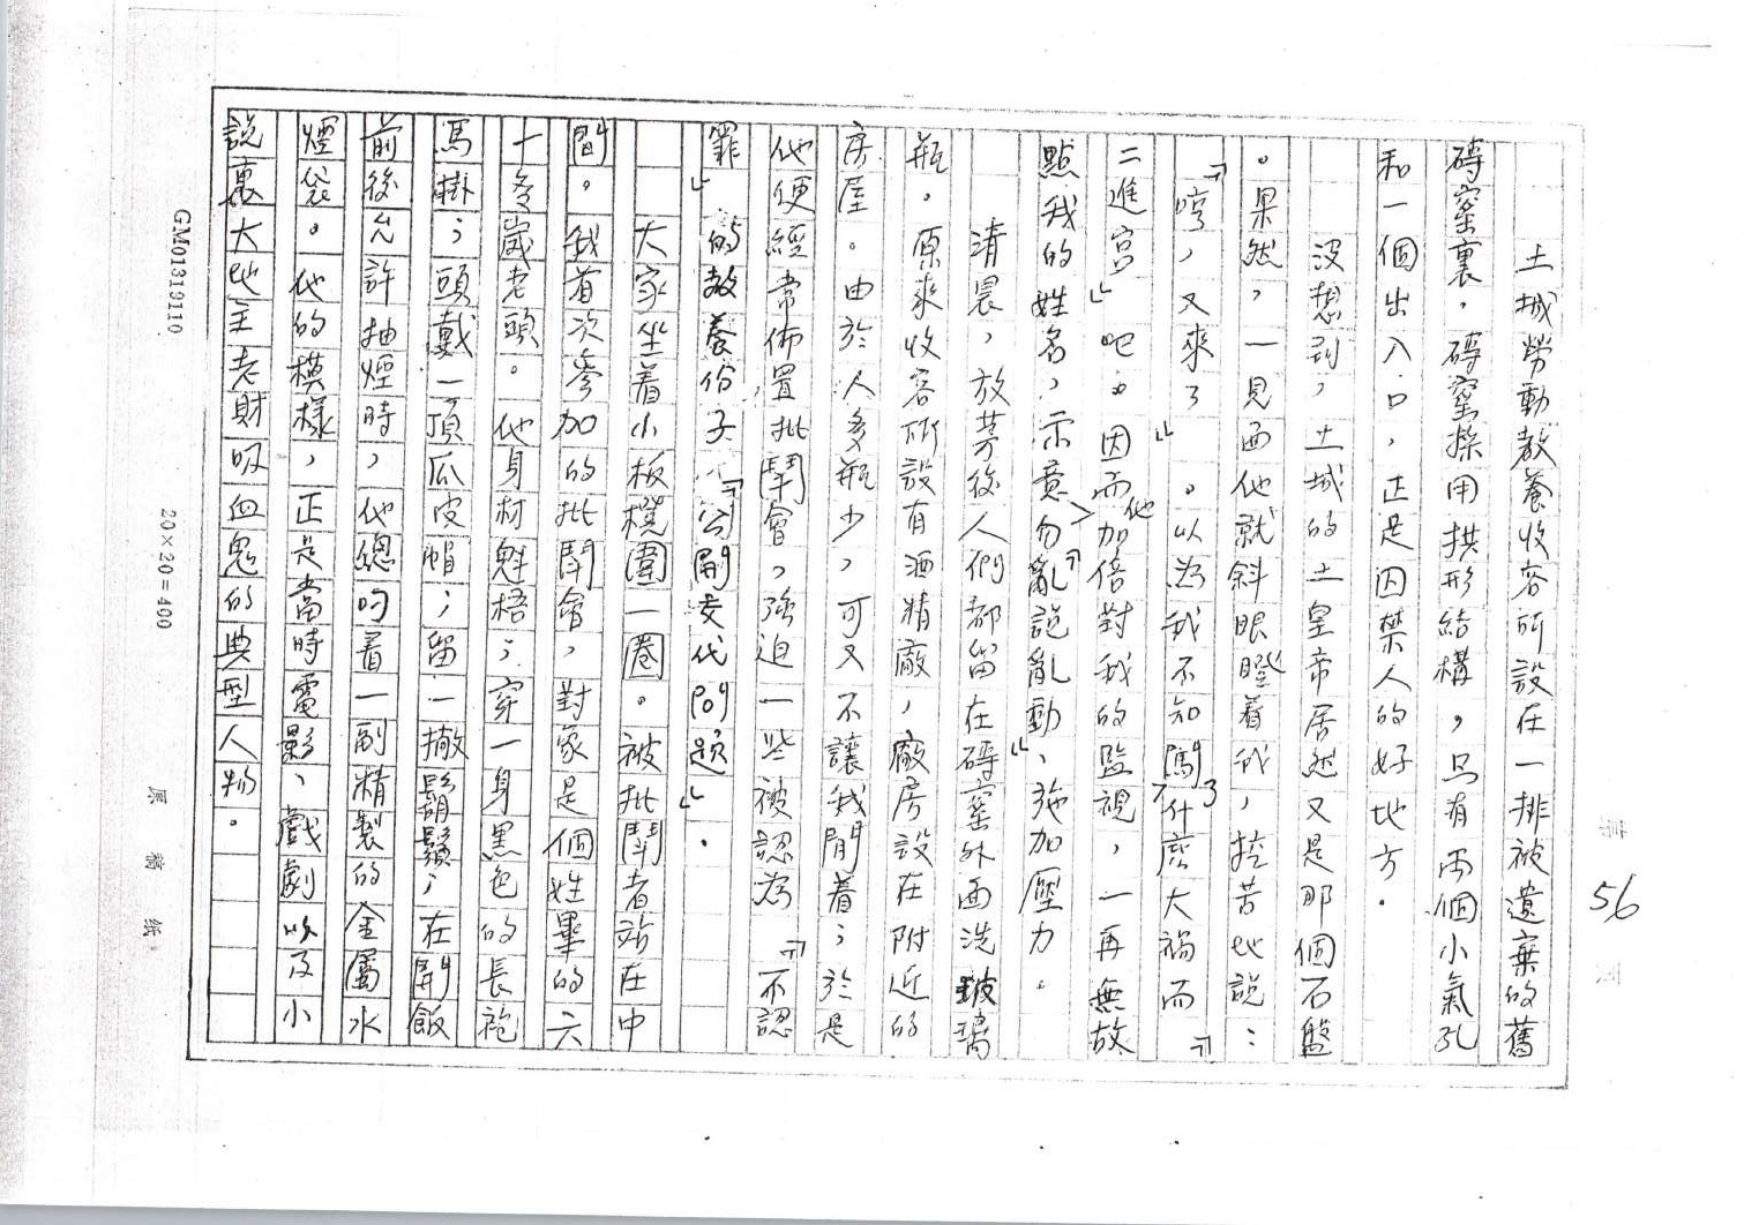 56
土城勞動教養收容所設在一排被遺棄的舊
磚窑裏，磚窑採用拱形結構，只有兩個小氣孔
和一個出入口，正是囚禁人的好地方。
没想到，土城的土皇帝居然又是那個石盤
。果然，一見面他就斜眼瞪着我，挖苦地說：
『哼，又來了』。以為我不知闖了什麽大禍而『
二進宮』吧。因而他加倍對我的監視，一再無故
點我的姓名，示意勿『亂說亂動』、施加壓力。
清晨，放茅後人們都留在磚窑外面洗玻璃
瓶。原來收容所設有酒精廠，廠房設在附近的
房屋。由於人多瓶少，可又不讓我閒着；於是
他便經常佈置批鬥會，強迫一些被認為『不認
罪』的教養份子『公開交代問題』。
大家坐着小板櫈圍一圈。被批鬥者站在中
間。我首次參加的批鬥會，對象是個姓畢的六
十多歲老頭。他身材魁梧；穿一身黑色的長袍
馬掛；頭戴一頂瓜皮帽；留一撇鬍鬚；在開飯
前後允許抽煙時，他總叼着一副精製的金屬水
煙袋。他的模樣，正是當時電影、戲劇以及小
說裏大地主老財吸血鬼的典型人物。
GM01319110
20×20=400
原稿紙